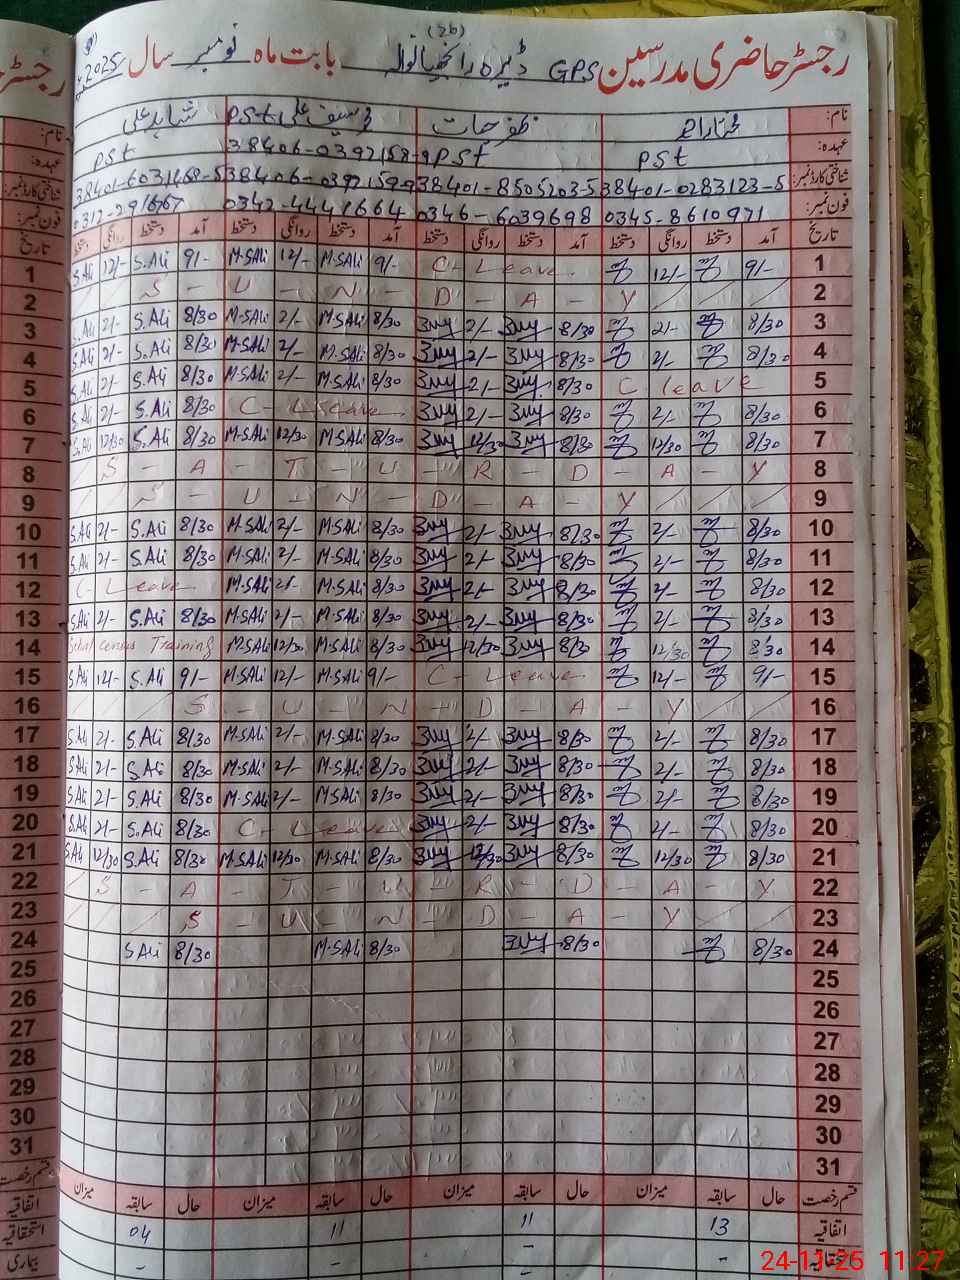 (26)
رجسٹر حاضری مدرسین GPS ڈیرہ رانجھیانوالہ بابت ماہ نومبر سال 2025
نام: مختار احمد ظفر حیات محمد سیف علی PSt شاہد علی
عہدہ: PSt PSt 38406-0392158-9 PSt
شناختی کارڈ نمبر: 38401-0283123-5 38401-8505203-5 38406-0392159-9 38401-6031468-5
فون نمبر: 0345-8610971 0346-6039698 0342-4441664
تاریخ آمد دستخط روانگی دستخط آمد دستخط روانگی دستخط آمد دستخط روانگی دستخط آمد دستخط روانگی دستخط
1 9/- 12/- C-Leave 9/- M.SAli 12/- M.SAli 9/- S.Ali 12/- S.Ali
2 S - U - N - D - A - Y
3 8/30 2/- 8/30 2/- 8/30 M.SAli 2/- M.SAli 8/30 S.Ali 2/- S.Ali
4 8/30 2/- 8/30 2/- 8/30 M.SAli 2/- M.SAli 8/30 S.Ali 2/- S.Ali
5 C leave 8/30 2/- 8/30 M.SAli 2/- M.SAli 8/30 S.Ali 2/- S.Ali
6 8/30 2/- 8/30 2/- C-Leave 8/30 S.Ali 2/- S.Ali
7 8/30 12/30 8/30 12/30 8/30 M.SAli 12/30 M.SAli 8/30 S.Ali 12/30 S.Ali
8 S - A - T - U - R - D - A - Y
9 S - U - N - D - A - Y
10 8/30 2/- 8/30 2/- 8/30 M.SAli 2/- M.SAli 8/30 S.Ali 2/- S.Ali
11 8/30 2/- 8/30 2/- 8/30 M.SAli 2/- M.SAli 8/30 S.Ali 2/- S.Ali
12 8/30 2/- 8/30 2/- 8/30 M.SAli 2/- M.SAli C-Leave
13 8/30 2/- 8/30 2/- 8/30 M.SAli 2/- M.SAli 8/30 S.Ali 2/- S.Ali
14 8/30 12/30 8/30 12/30 8/30 M.SAli 12/30 M.SAli census Training
15 9/- 12/- C-Leave 9/- M.SAli 12/- M.SAli 9/- S.Ali 12/- S.Ali
16 S - U - N - D - A - Y
17 8/30 2/- 8/30 2/- 8/30 M.SAli 2/- M.SAli 8/30 S.Ali 2/- S.Ali
18 8/30 2/- 8/30 2/- 8/30 M.SAli 2/- M.SAli 8/30 S.Ali 2/- S.Ali
19 8/30 2/- 8/30 2/- 8/30 M.SAli 2/- M.SAli 8/30 S.Ali 2/- S.Ali
20 8/30 2/- 8/30 2/- C-Leave 8/30 S.Ali 2/- S.Ali
21 8/30 12/30 8/30 12/30 8/30 M.SAli 12/30 M.SAli 8/30 S.Ali 12/30 S.Ali
22 S - A - T - U - R - D - A - Y
23 S - U - N - D - A - Y
24 8/30 8/30 8/30 M.SAli 8/30 S.Ali
25
26
27
28
29
30
31
قسم رخصت حال سابقہ میزان حال سابقہ میزان حال سابقہ میزان حال سابقہ میزان
اتفاقیہ 13 11 11 04
استحقاقیہ - - - -
بیماری
24-11-25 11:27